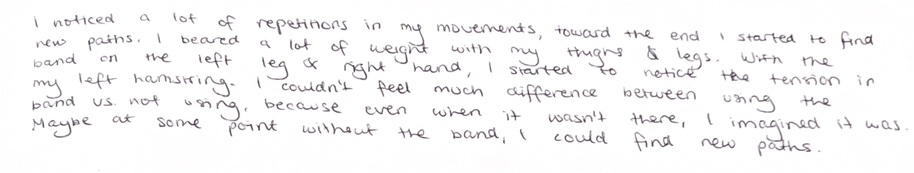 I noticed a lot of repetitions in my movements, toward the end I started to find
new paths. I beared a lot of weight with my thighs & legs. With the
band on the left leg & right hand, I started to notice the tension in
my left hamstring. I couldn't feel much difference between using the
band vs. not using, because even when it wasn't there, I imagined it was.
Maybe at some point without the band, I could find new paths.